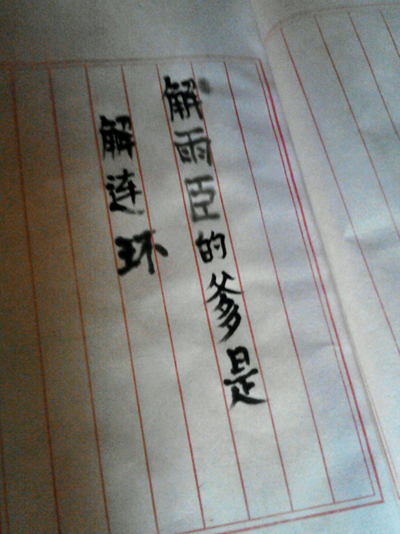 解雨臣的爹是
解连环